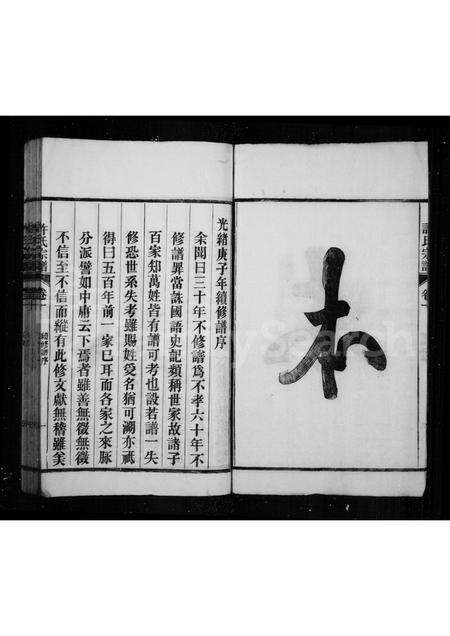 本
許氏宗譜 卷一
光緒庚子年續修譜序
余聞曰三十年不修譜為不孝六十年不
修譜罪當誅國語史記類稱世家故諸子
百家知萬姓皆有譜可考也設若譜一失
修恐世系失考雖賜姓受名猶可溯亦祗
得曰五百年前一家已耳而各家之來脉
分派譬如中庸云下焉者雖善無徵無徵
不信至不信而縱有此修文獻無稽雖矣
許氏宗譜 卷一 續修譜序 一